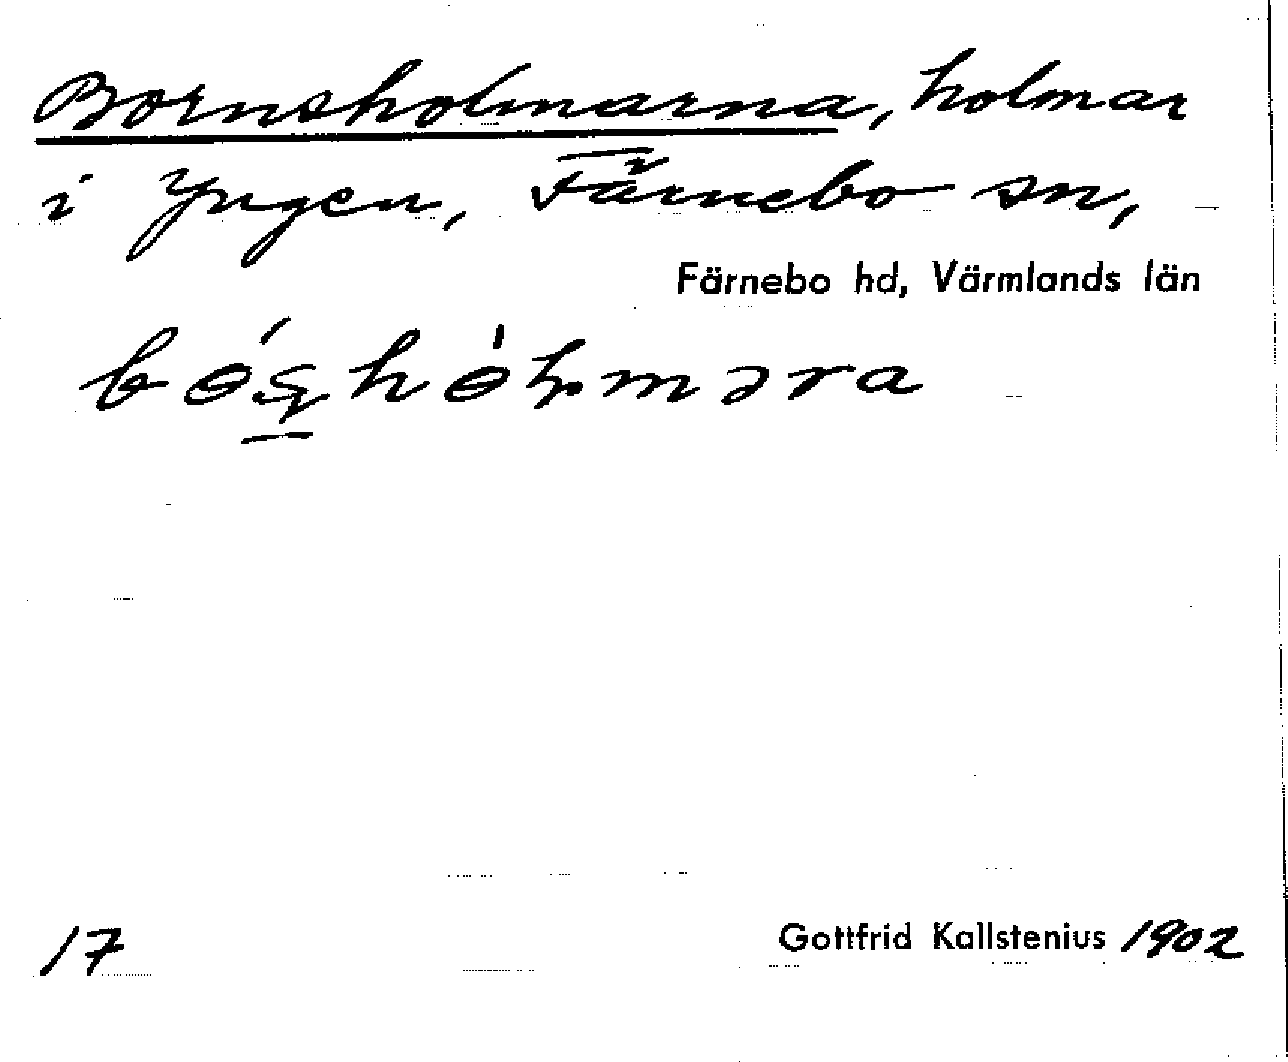 Bornsholmarna, holmar
i Yngen, Färnebo sn,
Färnebo hd, Värmlands län
17
Gottfrid Kallstenius 1902